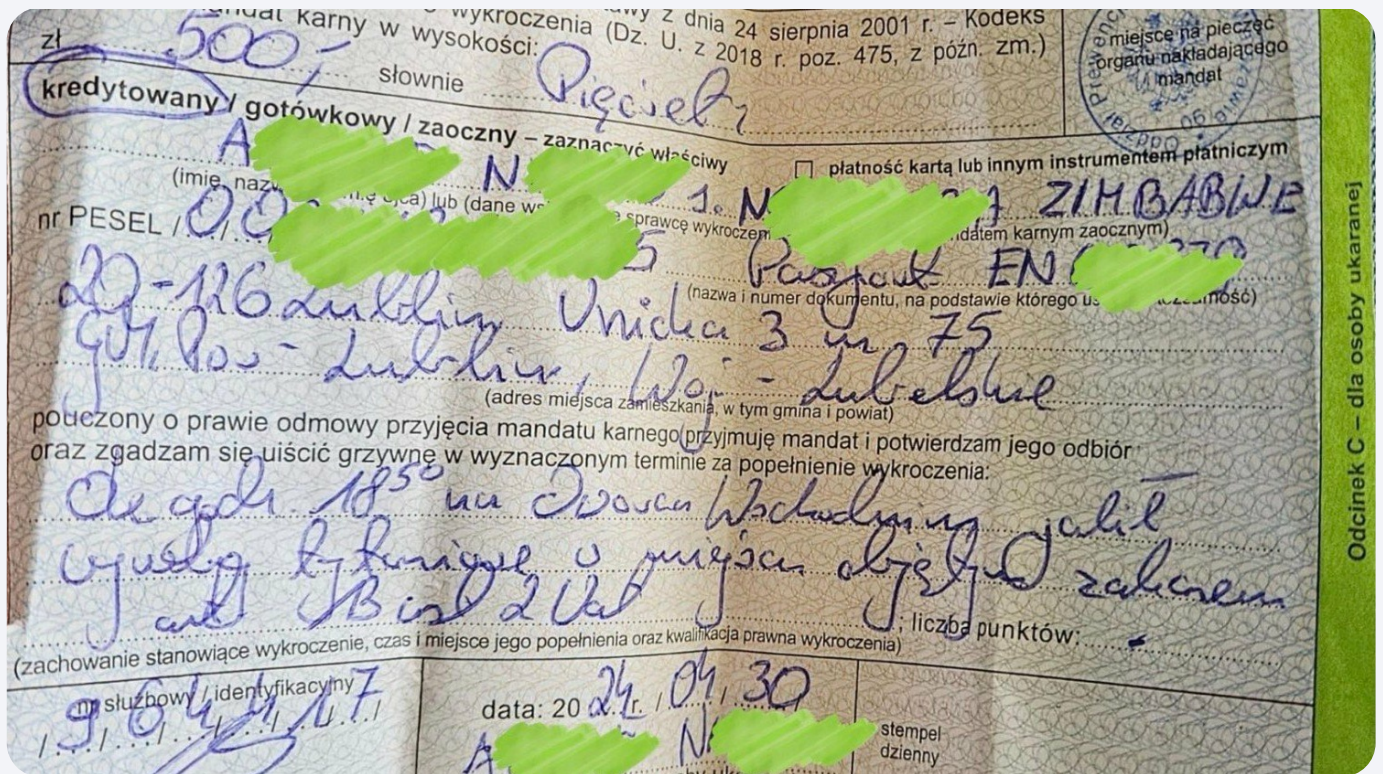 z dnia 24 sierpnia 2001 r. – Kodeks
wykroczenia (Dz. U. z 2018 r. poz. 475, z późn. zm.)
mandat karny w wysokości:
zł 500,- słownie Pięćset
miejsce na pieczęć
organu nakładającego
mandat
kredytowany / gotówkowy / zaoczny – zaznaczyć właściwy
płatność kartą lub innym instrumentem płatniczym
A N N A ZIMBABWE
(imię, lub (dane sprawcę karnym zaocznym)
nr PESEL / 00 5 Paszport EN
(nazwa i numer dokumentu, na podstawie którego
20-126 Lublin Unicka 3 m. 75
gm, Pow - Lublin, Woj - Lubelskie
(adres miejsca zamieszkania, w tym gmina i powiat)
pouczony o prawie odmowy przyjęcia mandatu karnego przyjmuję mandat i potwierdzam jego odbiór
oraz zgadzam się uiścić grzywnę w wyznaczonym terminie za popełnienie wykroczenia:
18⁵⁰ na Wschodnim palił
wyroby tytoniowe w miejscu objętym zakazem
art
; liczba punktów: -
(zachowanie stanowiące wykroczenie, czas i miejsce jego popełnienia oraz kwalifikacja prawna wykroczenia)
nr służbowy / identyfikacyjny
data: 20 24 r. / 04 / 30
A N
stempel
dzienny
Odcinek C – dla osoby ukaranej